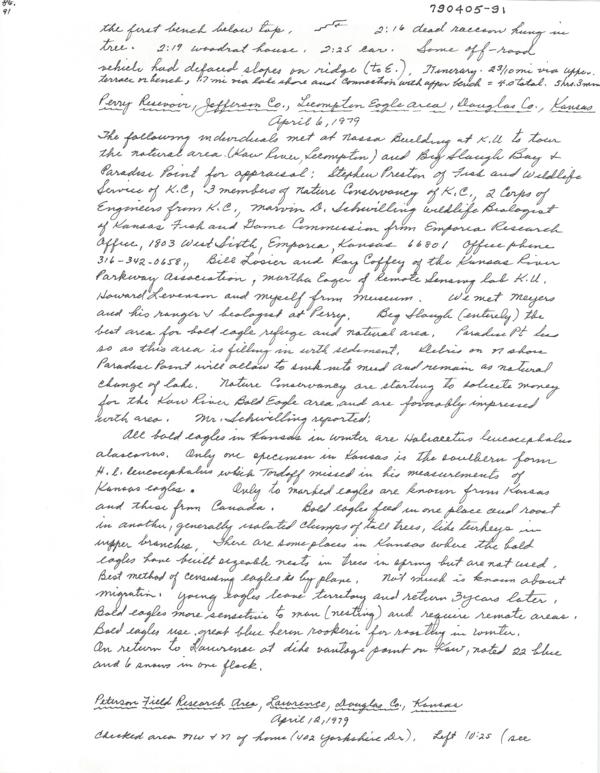 86.
91
790405-91
the first bench below top. 2:16 dead raccoon hung in
tree. 2:19 woodrat house. 2:25 car. Some off-road
vehicle had defaced slopes on ridge (to E.). Itinerary. 2 3/10 mi via upper
terrace or bench, 1.7 mi via lake shore and connection with upper bench = 4.0 total. 3 hrs. 3 min
Perry Resevoir, Jefferson Co., Lecompton Eagle area, Douglas Co., Kansas
April 6, 1979
The following individuals met at Nassa Building at K.U to tour
the natural area (Kaw River, Lecompton) and Big Slough Bay &
Paradise Point for appraisal: Stephen Preston of Fish and Wildlife
Service of K.C., 3 members of Nature Conservancy of K.C., 2 Corps of
Engineers from K.C., Marvin D. Schwilling Wildlife Biologist
of Kansas Fish and Game Commission from Emporia Research
Office, 1803 West Sixth, Emporia, Kansas 66801 Office phone
316-342-0658, Bill Losier and Ray Coffey of the Kansas River
Parkway Association, Martha Eager of Remote Sensing lab K.U.
Howard Levenson and myself from museum. We met Meyers
and his ranger & biologist at Perry. Big Slough (entirely) the
best area for bald eagle refuge and natural area. Paradise Pt less
so as this area is filling in with sediment. Debris on N shore
Paradise Point will allow to sink into mud and remain as natural
change of lake. Nature Conservancy are starting to solicite money
for the Kaw River Bald Eagle area and are favorably impressed
with area. Mr. Schwilling reported:
All bald eagles in Kansas in winter are Haliaeetus leucocephalus
alascanus. Only one specimen in Kansas is the southern form
H. l. leucocephalus which Tordoff missed in his measurements of
Kansas eagles. Only two marked eagles are known from Kansas
and these from Canada. Bald eagles feed in one place and roost
in another, generally isolated clumps of tall trees, like turkeys in
upper branches. There are some places in Kansas where the bald
eagles have built sizeable nests in trees in spring but are not used.
Best method of censusing eagles is by plane. Not much is known about
migration. Young eagles leave territory and return 3 years later.
Bald eagles more sensitive to man (nesting) and require remote areas.
Bald eagles use great blue heron rookeries for roosting in winter.
On return to Lawrence at dike vantage point on Kaw, noted 22 blue
and 6 snows in one flock.
Peterson Field Research Area, Lawrence, Douglas Co., Kansas
April 12, 1979
Checked area NW & N of home (402 Yorkshire Dr). Left 10:25 (see